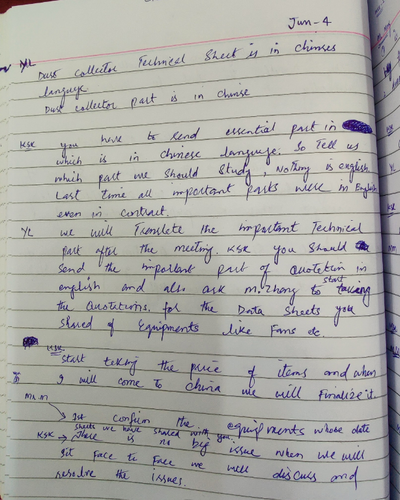 Jun-4
YL Dust collector Technical Sheet is in chinses
language
Dust collector part is in chinse
KSK you have to send essential part in
which is in chinese language. So Tell us
which part we should study, Nothing is english
Last time all important parts were in English
even in contract.
YL we will Translate the important Technical
part after the meeting. KSK you should
send the important part of quotetion in
english and also ask m.zhang to start taking
the quotations. for the Data Sheets you
shared of Equipments like Fans etc.
KSK
start teking the price of items and when
I will come to china we will Finalize it.
Mr. m
1st confirm the equipments whose date
sheets we have shared with you
KSK → There is no big issue when we will
sit Face to Face we will discuss and
resolve the issues.